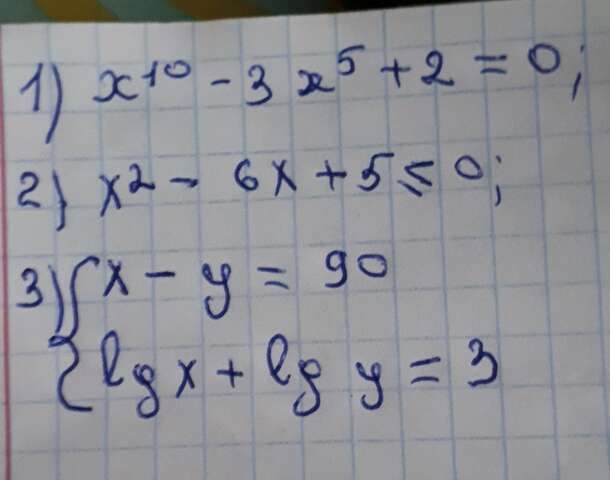 1) x¹⁰ - 3x⁵ + 2 = 0;
2) x² - 6x + 5 ≤ 0;
3) { x - y = 90
{ lg x + lg y = 3